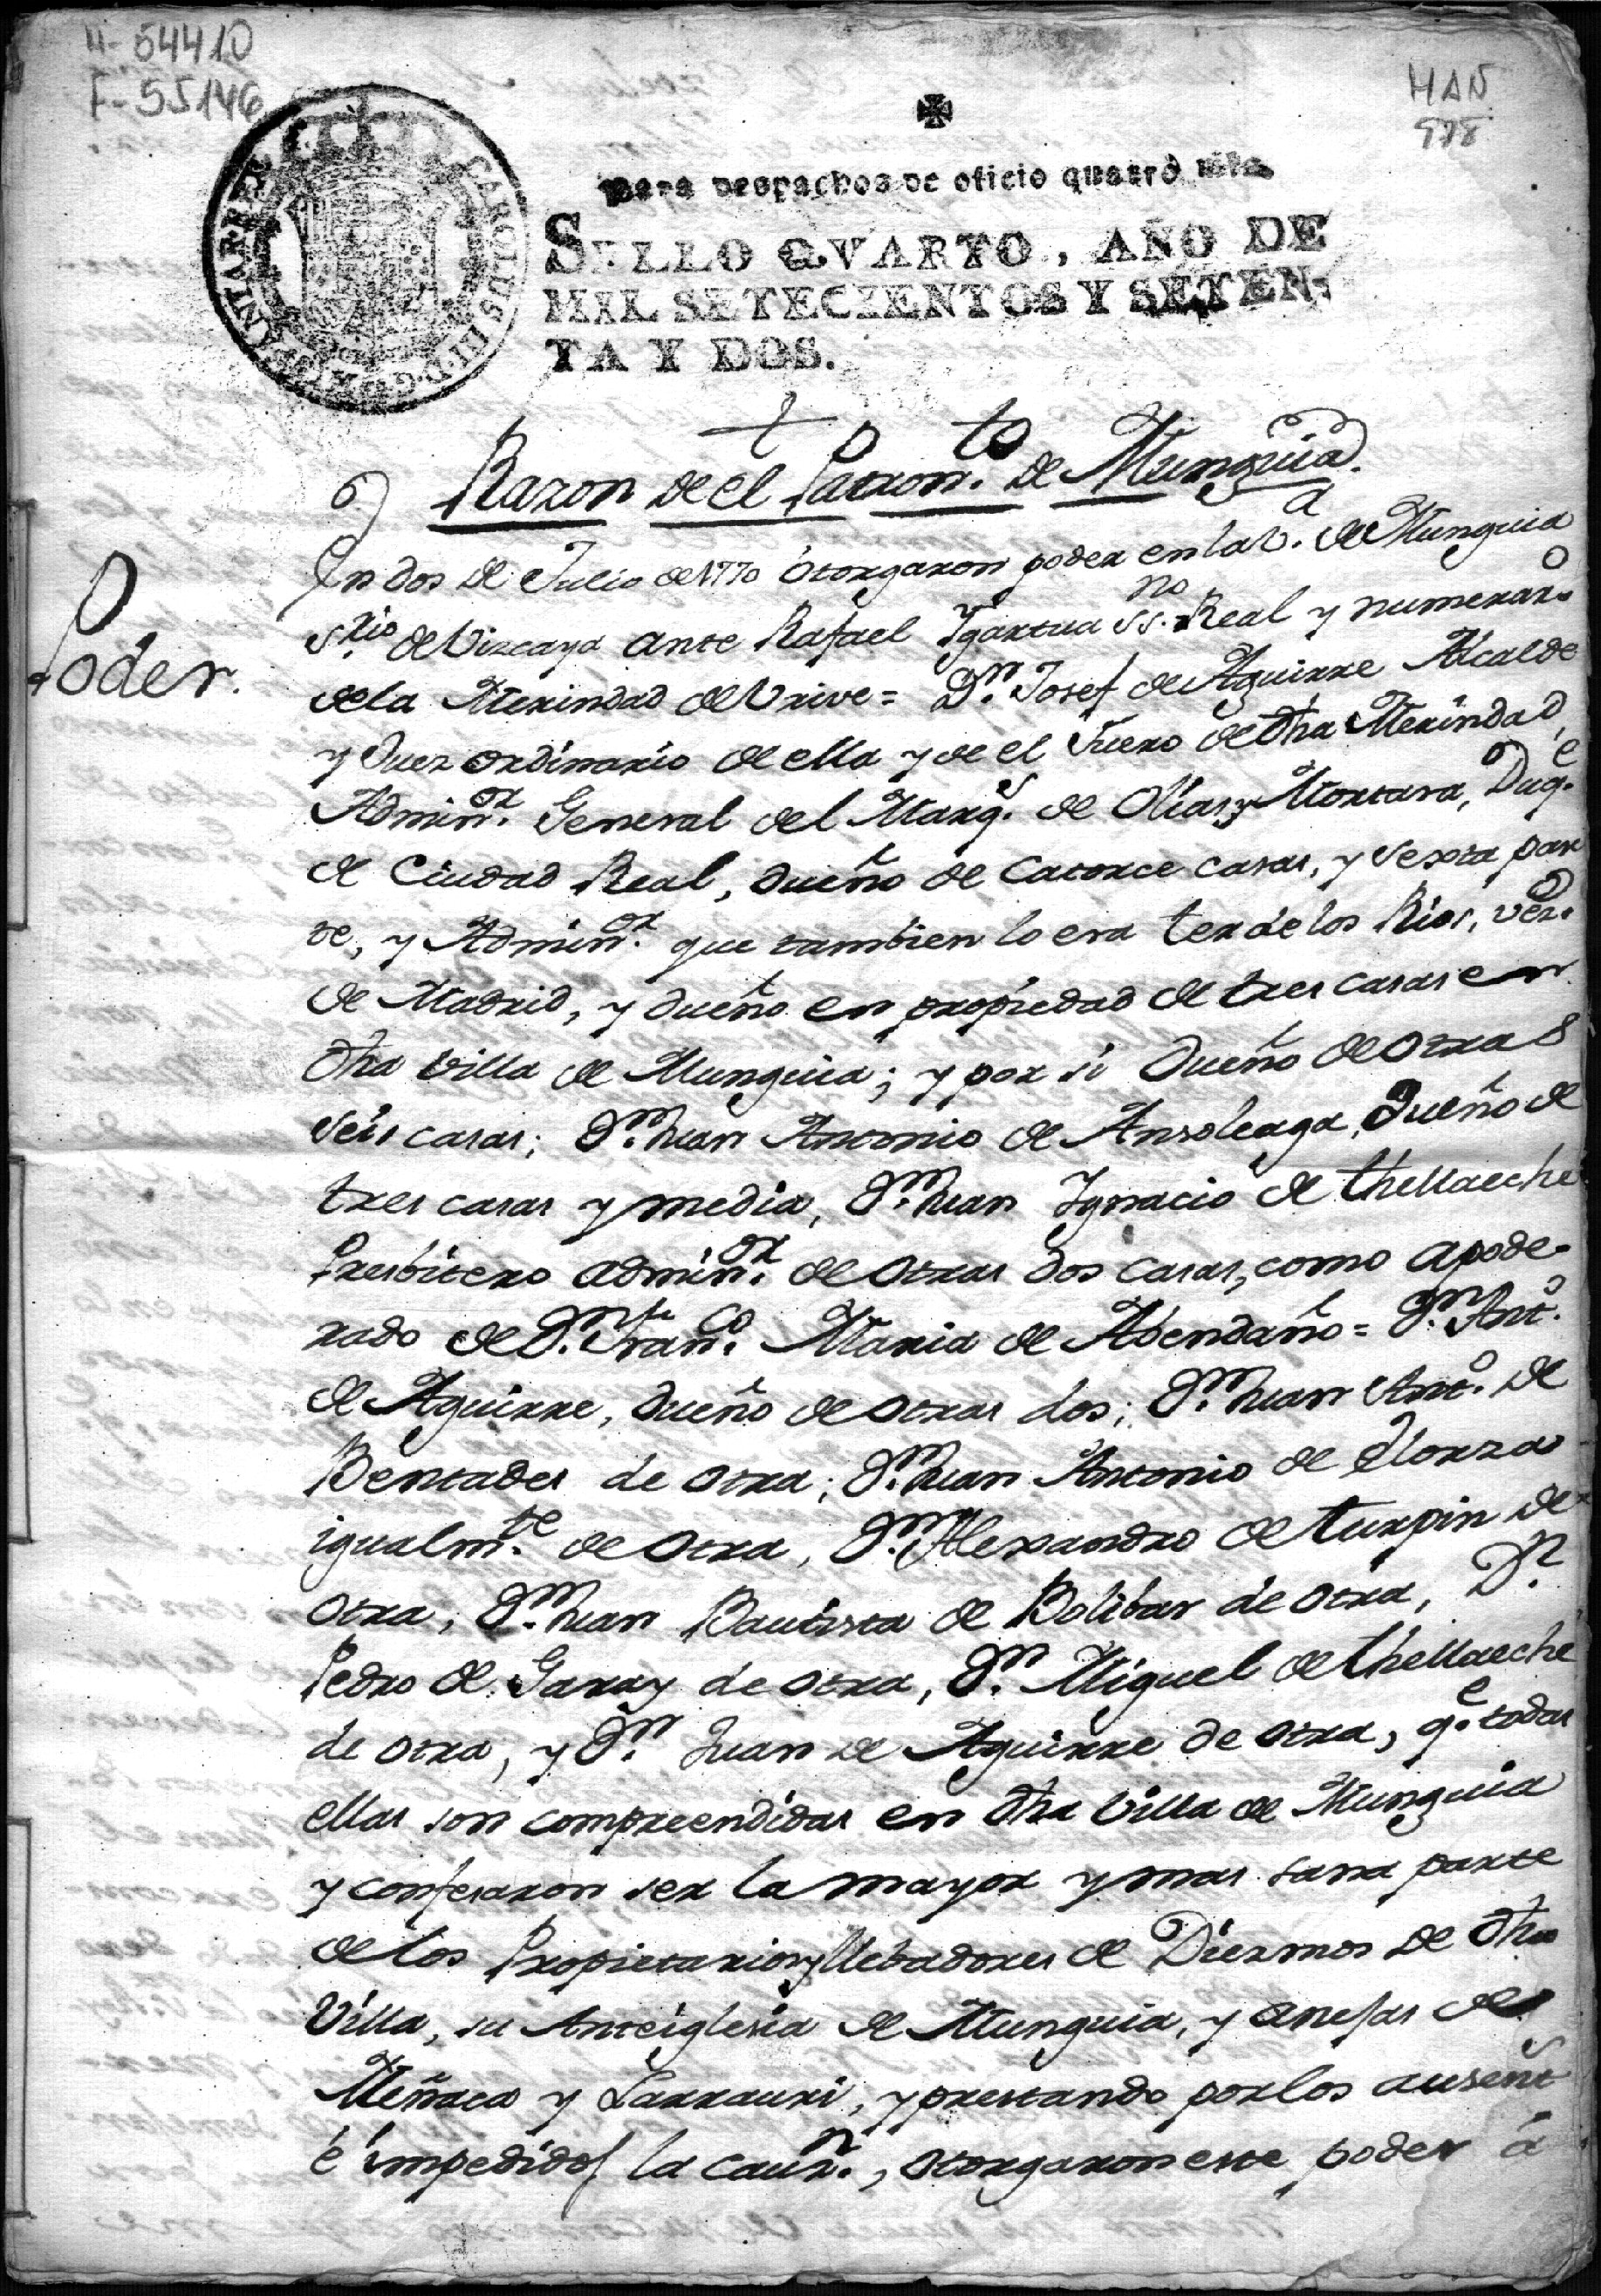 H- 54410
F- 55146
MAN
578
Para despachos de oficio quatro mrs.
SELLO QVARTO, AÑO DE
MIL SETECIENTOS Y SETEN-
TA Y DOS.
CAROLUS III D G HISPANIAR REX
Razon de el Patron.to de Munguia.
Poder.
En dos de Julio de 1770 otorgaron poder en la V.a de Munguia
S.rio de Vizcaya ante Rafael Ygartua ss.no Real y numerar.o
de la Merindad de Vrive = D.n Josef de Aguirre Alcalde
y Juez ordinario de ella y de el Fuero de dha Merindad,
Admin.or General del Marq.s de Olias y Mortara, Duq.e
de Ciudad Real, dueño de Catorce casas, y sexta par
te, y Admin.or que tambien lo era de los Rios, vez.o
de Madrid, y dueño en propiedad de tres casas en
dha villa de Munguia; y por si Dueño de otras
seis casas; D.n Juan Antonio de Ansoleaga, Dueño de
tres casas y media, D.n Juan Ygnacio de thellaeche
Presbitero admin.or de otras dos casas, como apode-
rado de D.n Fran.co Maria de Abendaño = D.n Ant.o
de Aguirre, dueño de otras dos; D.n Juan Ant.o de
Bentades de otra; D.n Juan Antonio de Elorza
igualm.te de otra, D.n Alexandro de turpin de
otra, D.n Juan Bautista de Bolibar de otra, D.n
Pedro de Garay de otra, D.n Miguel de thellaeche
de otra, y D.n Juan de Aguirre de otra, q.e todas
ellas son compreendidas en dha Villa de Munguia
y confesaron ser la mayor y mas sana parte
de los Propietarios y llebadores de Diezmos de dha
Villa, su Anteiglesia de Munguia, y anejas de
Meñaca y Larrauri, y prestando por los ausent
é impedidos la cauz.n, otorgaron este poder á